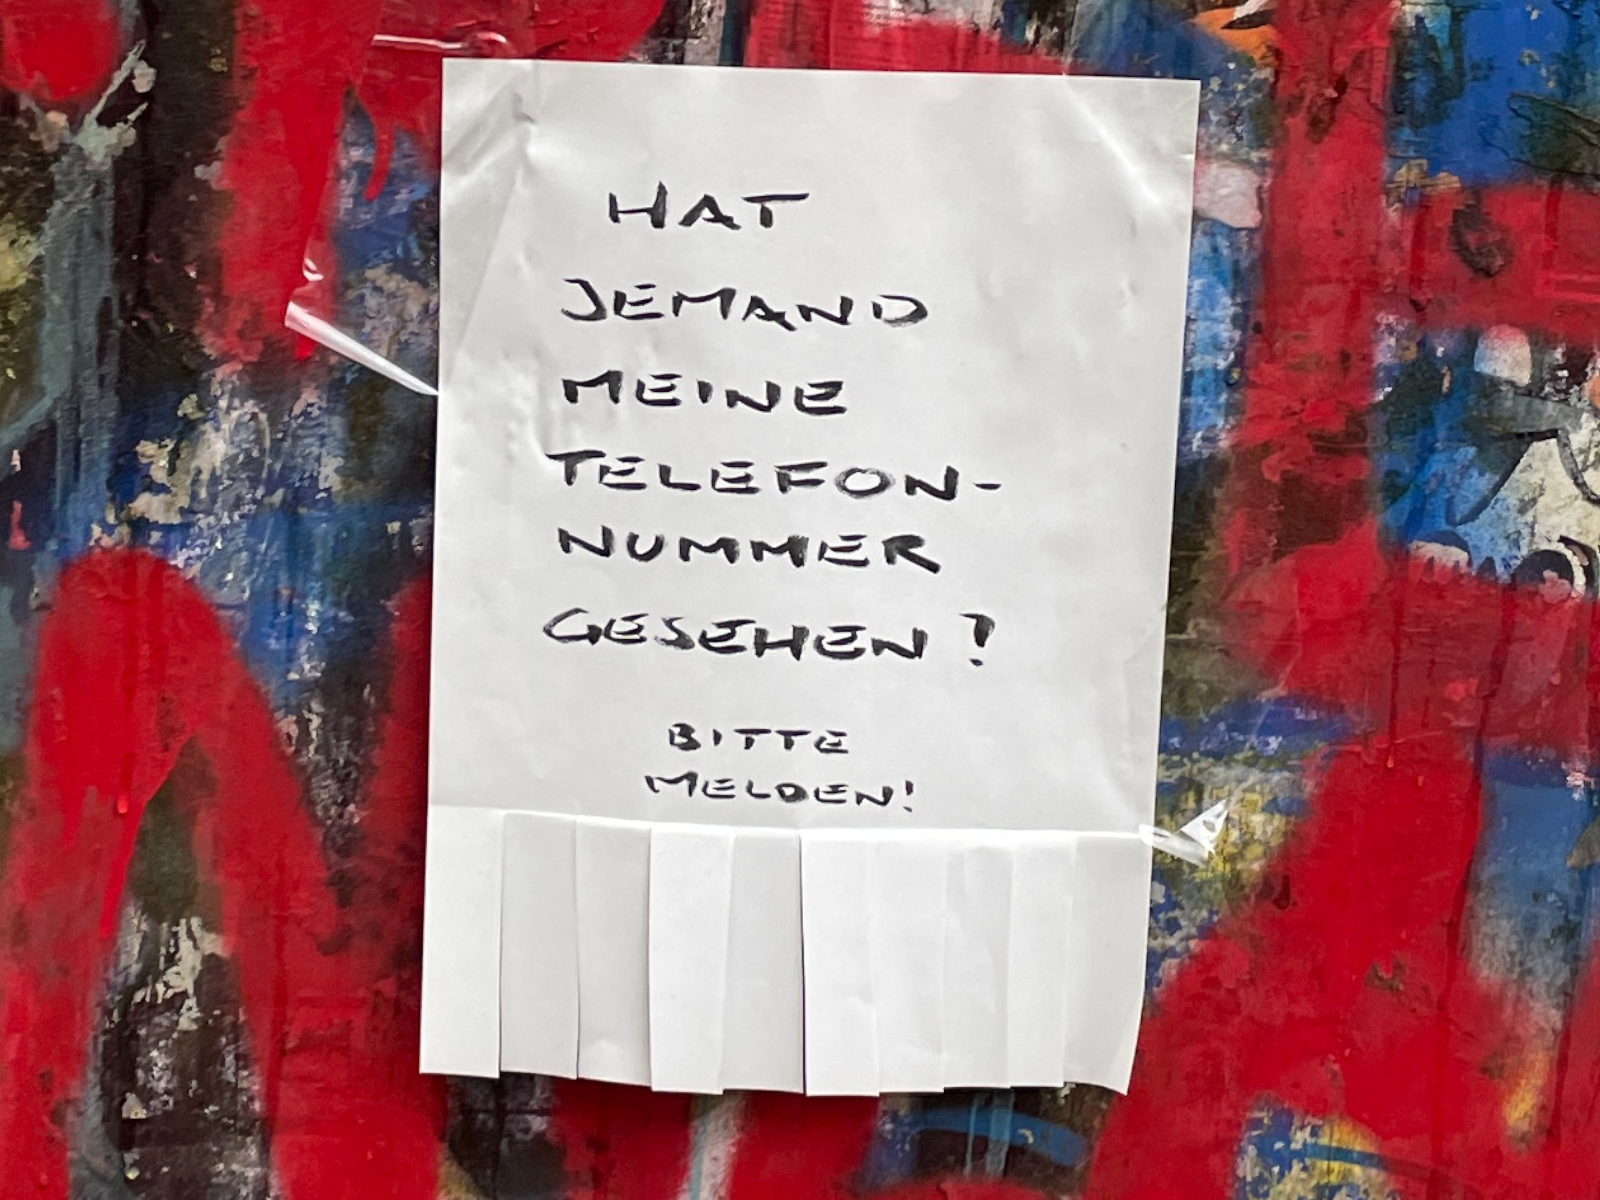 HAT
JEMAND
MEINE
TELEFON-
NUMMER
GESEHEN?
BITTE
MELDEN!